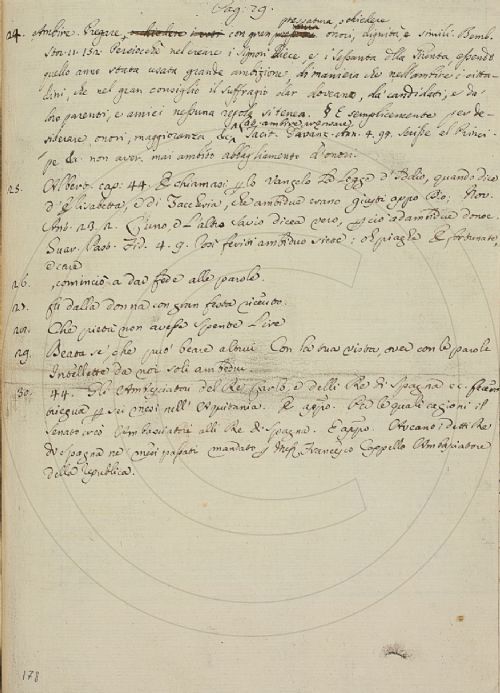 Pag. 29.
24. Ambire. Pregare, con gran pressatura, e chiedere onori, dignità, e simili. Bemb.
Stor. 11. 152. Perciocchè nel creare i Signori Diece, e i sessanta della Giunta, essendo
quello anno stata usata grande ambizione, di maniera che nell'entrare i citta-
dini, che nel gran consiglio il suffragio dar doveano, da' candidati, e da'
loro parenti, e amici nessuna regola si tenea. § E semplicemente per de-
siderare onori, maggioranza &c. Lat. ambire, Tacit. Davanz. Ann. 4. 99. Scrisse el Princi-
pe di non aver mai ambito abbagliamento d'onori.
25. Albert. cap. 44. E chiamasi lo Vangelo Legge d'Iddio, quando dice
d'Elisabetta, e di Zaccheria, che ambidue erano giusti appo Dio; Nov.
Ant. 23. 2. L'uno, e l'altro savio dicea vero, perciò ad ambidue donoe.
Guar. Past. Fid. 4. 9. Voi feriti ambiduo siete; oh piaghe E fortunate,
e care
26. , cominciò a dar fede alle parole.
27. fu dalla donna con gran festa ricevuto.
28. Che pietà non avesse spente l'ire
29. Beata se', che può' beare altrui Con la tua vista, over con le parole
Intellette da noi soli ambedui
30. 44. Gli Ambasciatori del Re Carlo, e delli Re di Spagna &c. fecero
triegua per sei mesi nell'Aquitania. E appo. Per le quali cagioni il
Senato creò Ambasciatori alli Re di Spagna. E appo. Aveano i detti Re
di Spagna ne' mesi passati mandato Mess. Francesco Cappello Ambasciatore
della Repubblica.
178